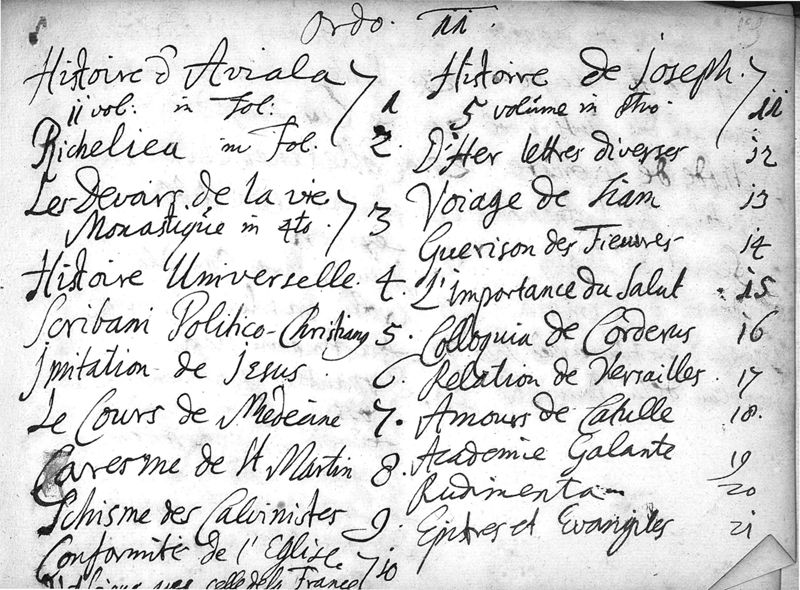 Ordo. II.
Histoire d'Aviala
ii vol: in Fol: 1
Richelieu in Fol. 2.
Les Devoirs de la vie
Monastique in 4to. 3
Histoire Universelle. 4.
Scribani Politico-Christianus 5.
Jmitation de Jesus. 6.
Le Cours de Médecine 7.
Caresme de St Martin 8.
Schisme des Calvinistes 9.
Conformité de l'Eglise
celle de la France 10
Histoire de Joseph.
5 volume in 8tvo. 11
D'Her lettres diverses 12
Voiage de Siam 13
Guerison des Fieuvres 14
L'importance du Salut 15
Colloquia de Corderus 16
Relation de Versailles. 17
Amours de Catulle 18.
Academie Galante 19
Rudimenta 20
Epitres et Evangiles 21